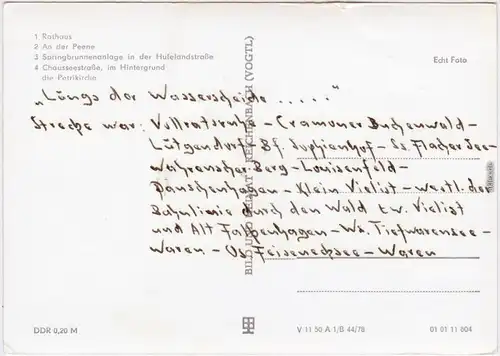 1 Rathaus
2 An der Peene
3 Springbrunnenanlage in der Hufelandstraße
4 Chausseestraße, im Hintergrund
die Petrikirche
Echt Foto
„Längs der Wasserscheide ....."
Strecke war: Vollratsruhe - Cramoner Buchenwald -
Lütgendorf - Bf. Sophienhof - Os. Flacher See -
Wahrenscher Berg - Louisenfeld -
Panschenhagen - Klein Vielist - westl. der
Bahnlinie durch den Wald zw. Vielist
und Alt Falkenhagen - Ws. Tiefwarensee -
Waren - Os. Feisnecksee - Waren
BILD UND HEIMAT REICHENBACH (VOGTL)
DDR 0,20 M
V 11 50 A 1/B 44/78
01 01 11 604